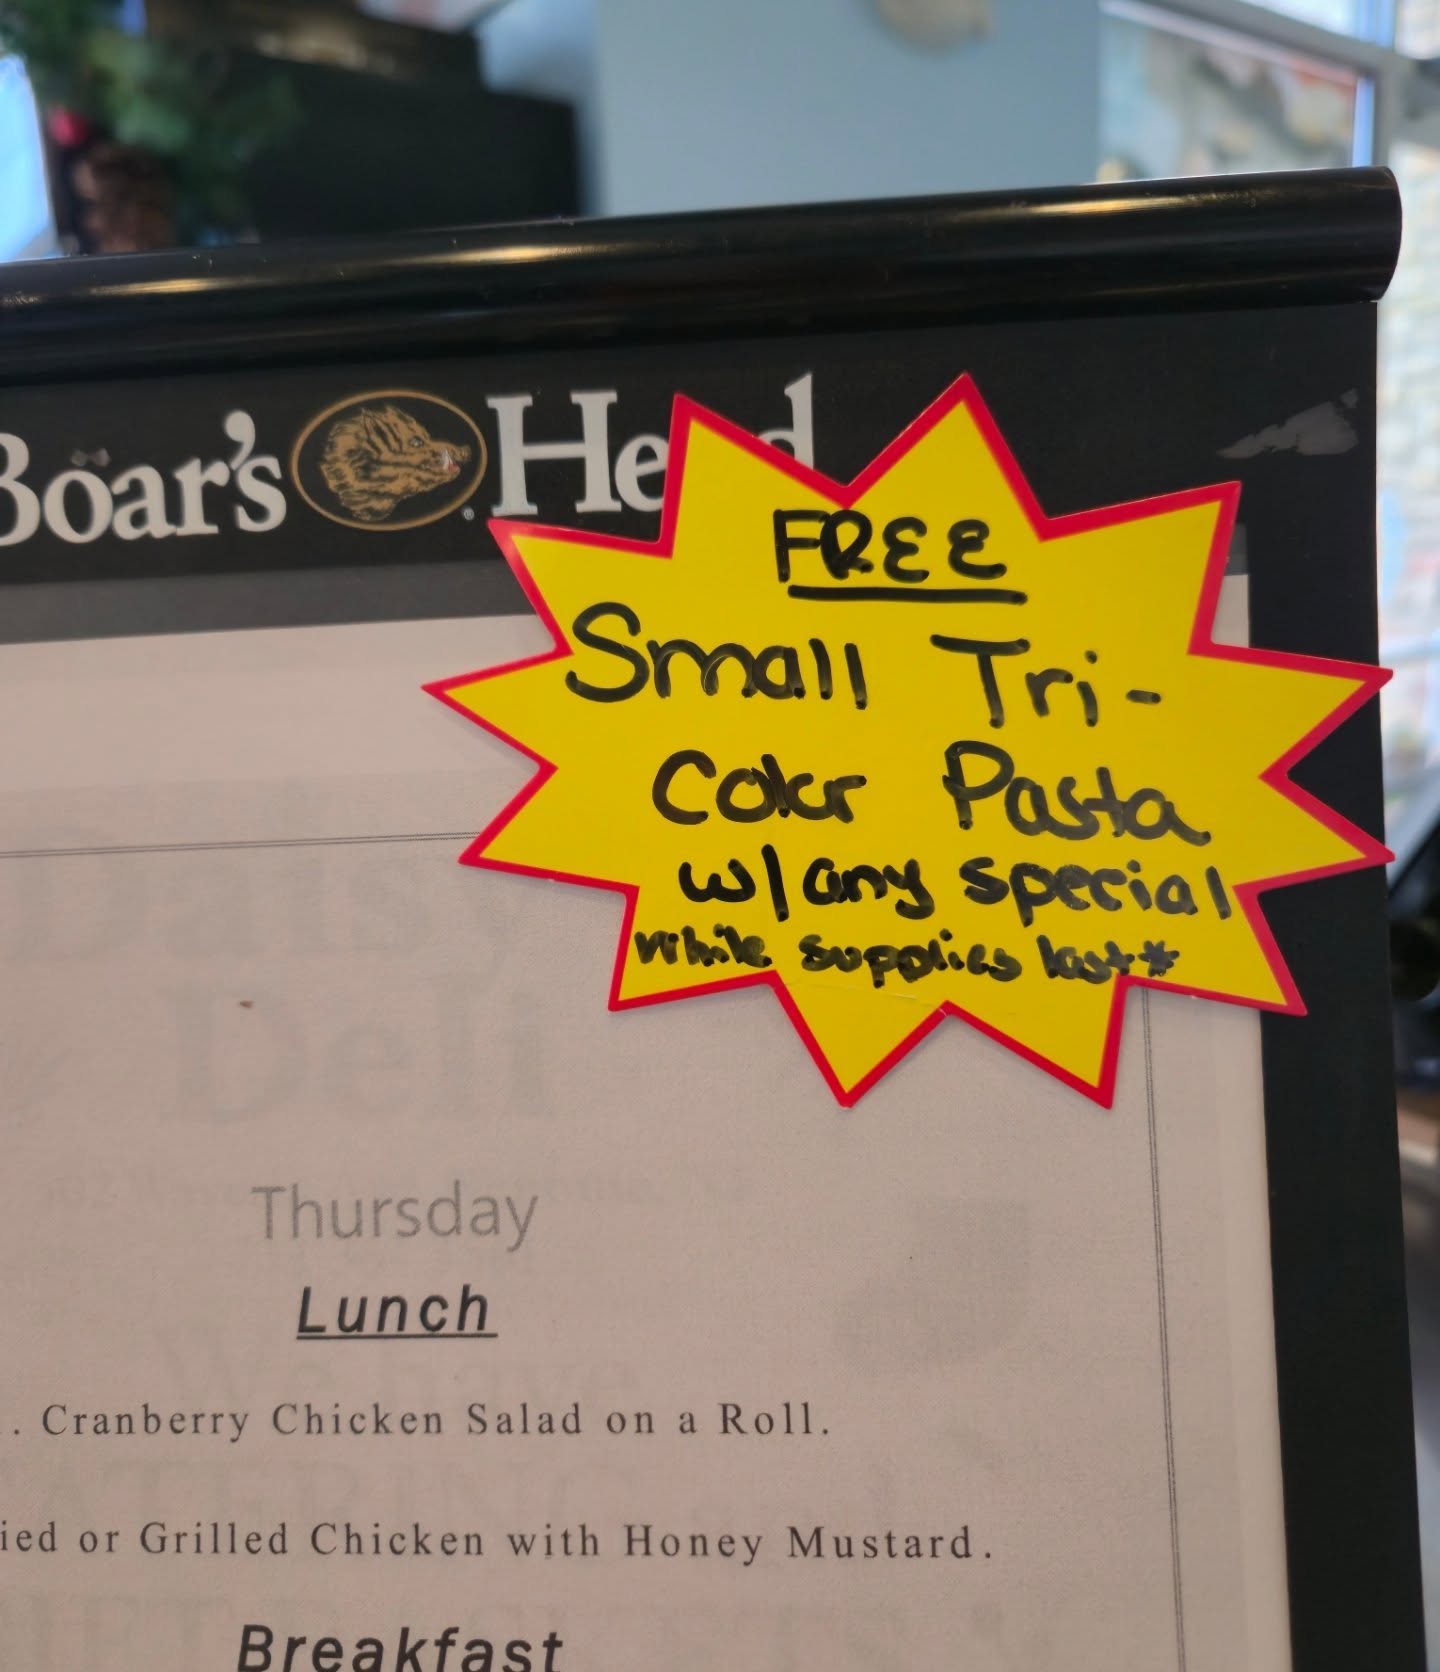 Boar's Head
FREE
Small Tri-
Color Pasta
w/any special
while supplies last*
Daisy
Deli
Thursday
Lunch
. Cranberry Chicken Salad on a Roll.
We have
CATERING
ied or Grilled Chicken with Honey Mustard.
Breakfast